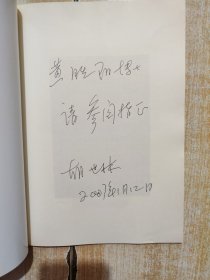 黄胜白博士
请参阅指正
胡世林
2007年1月12日